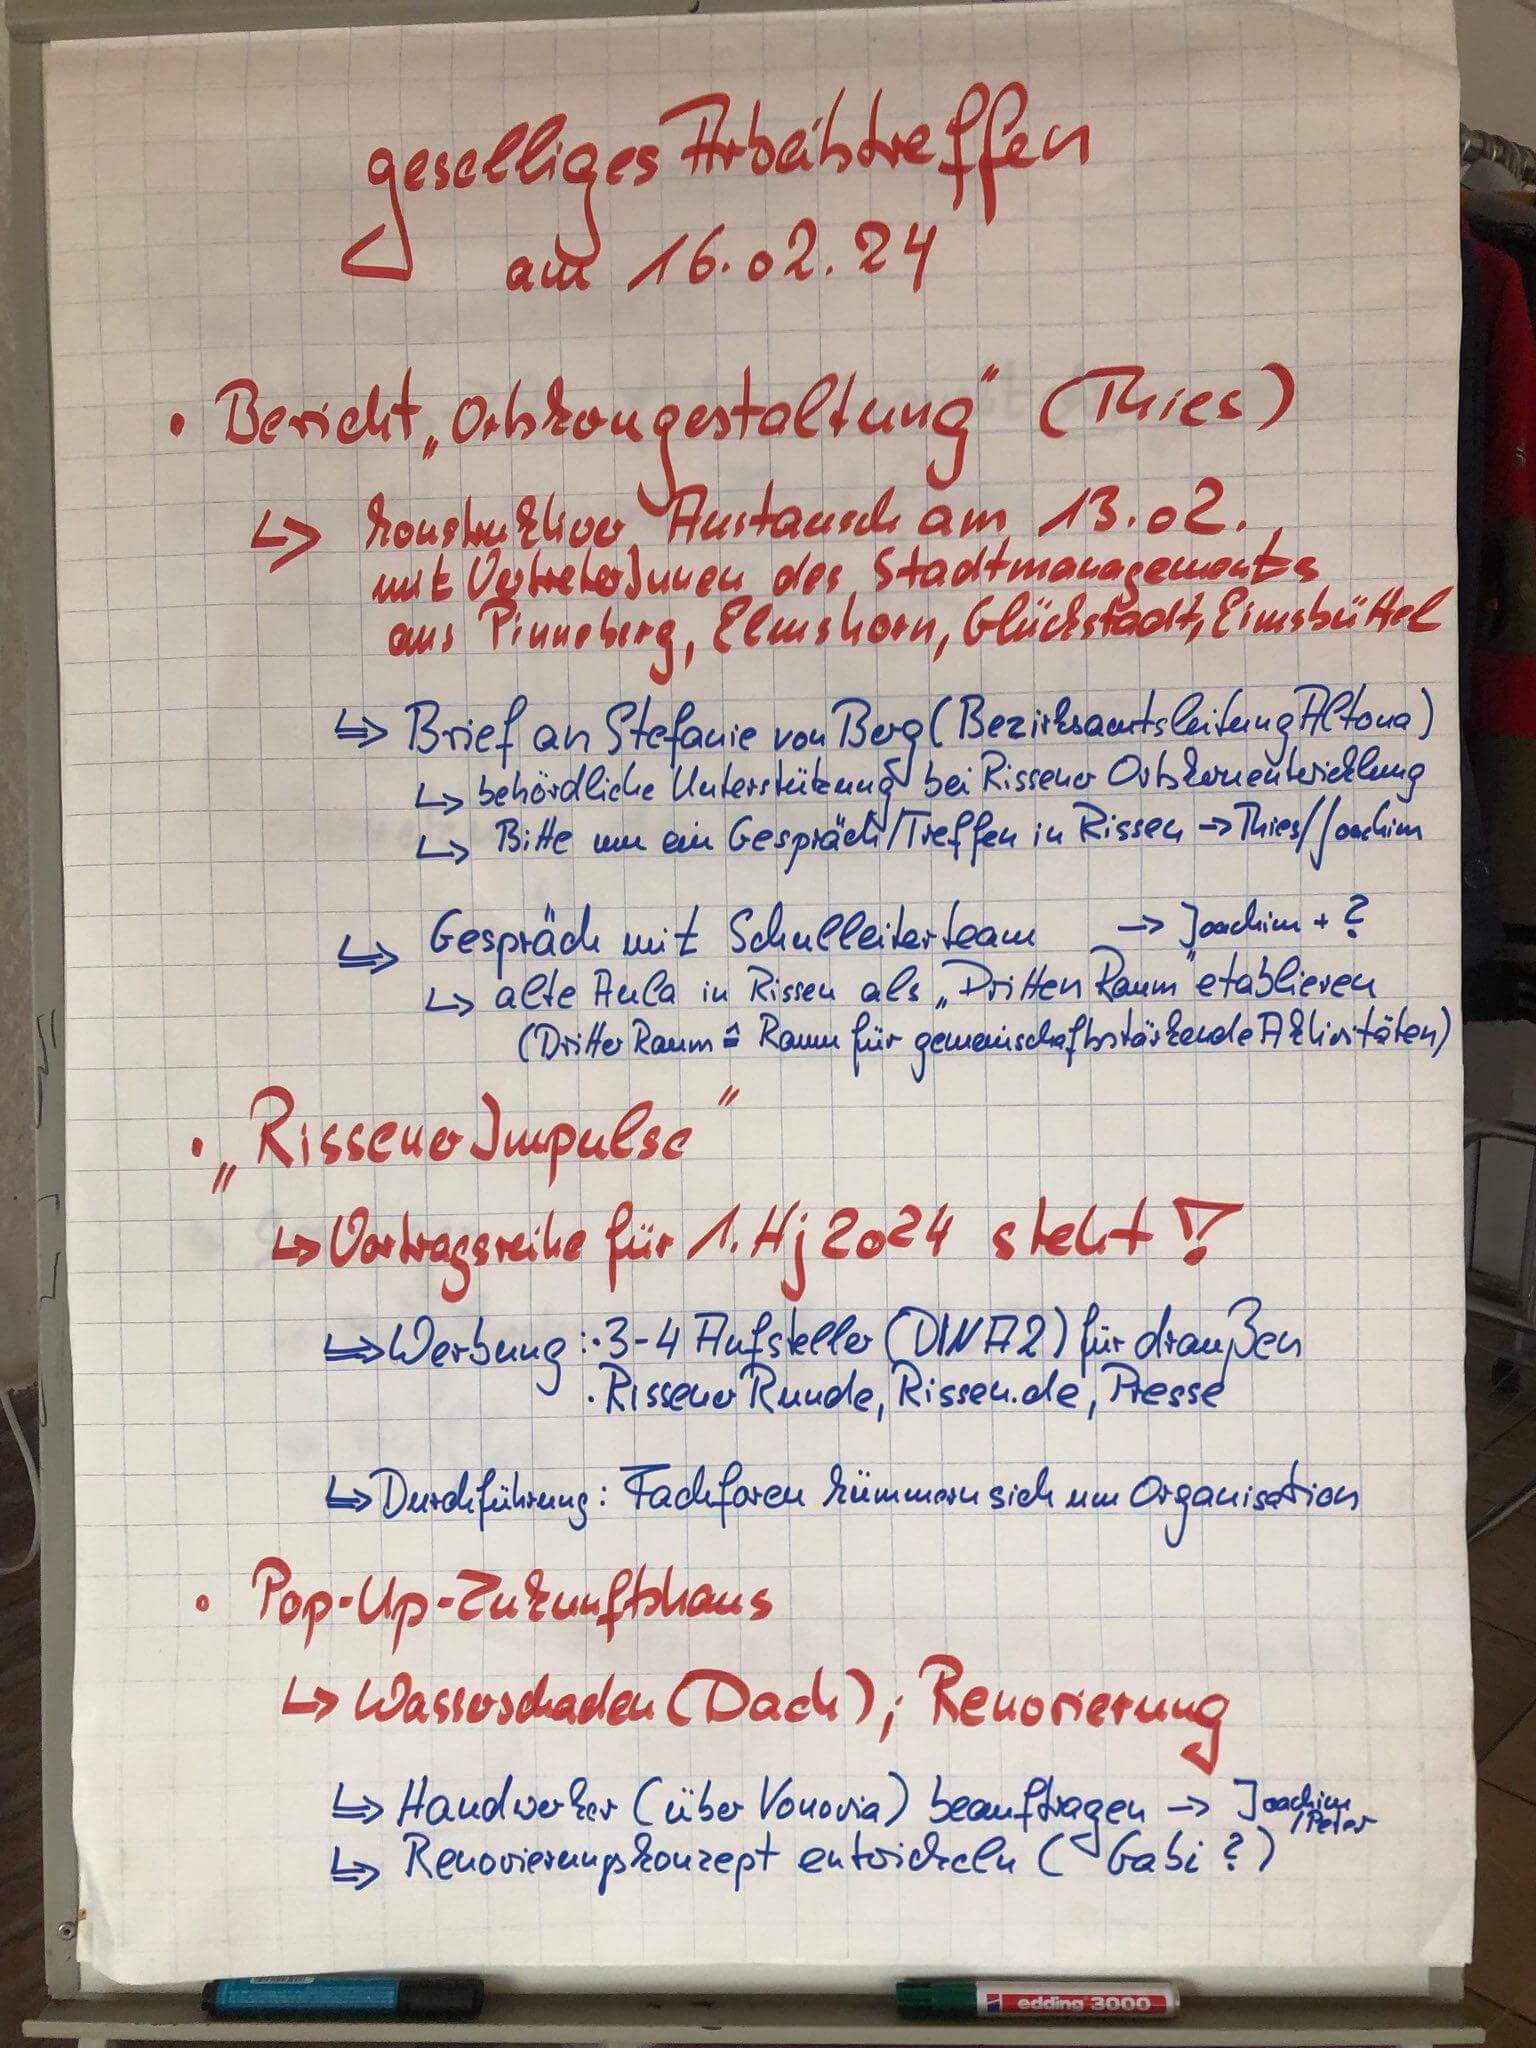 geselliges Arbeitstreffen
am 16.02.24
• Bericht „Ortskerngestaltung" (Thies)
↳ konstruktiver Austausch am 13.02.
mit VertreterInnen des Stadtmanagements
aus Pinneberg, Elmshorn, Glückstadt, Eimsbüttel
↳ Brief an Stefanie von Berg (Bezirksamtsleitung Altona)
↳ behördliche Unterstützung bei Rissener Ortskernentwicklung
↳ Bitte um ein Gespräch/Treffen in Rissen → Thies/Joachim
↳ Gespräch mit Schulleiterteam → Joachim + ?
↳ alte Aula in Rissen als „Dritten Raum" etablieren
(Dritter Raum ≙ Raum für gemeinschaftsstärkende Aktivitäten)
• „Rissener Impulse"
↳ Vortragsreihe für 1. Hj 2024 steht!
↳ Werbung: · 3-4 Aufsteller (DIN A2) für draußen
· Rissener Runde, Rissen.de, Presse
↳ Durchführung: Fachforen kümmern sich um Organisation
• Pop-Up-Zukunftshaus
↳ Wasserschaden (Dach); Renovierung
↳ Handwerker (über Vonovia) beauftragen → Joachim
/Peter
↳ Renovierungskonzept entwickeln (Gabi?)
edding 3000